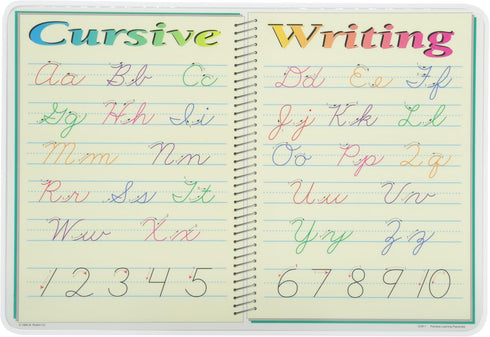 Cursive Writing
Aa Bb Cc
Gg Hh Ii
Mm Nn
Rr Ss Tt
Ww Xx
1 2 3 4 5
Dd Ee Ff
Jj Kk Ll
Oo Pp Qq
Uu Vv
Yy Zz
6 7 8 9 10